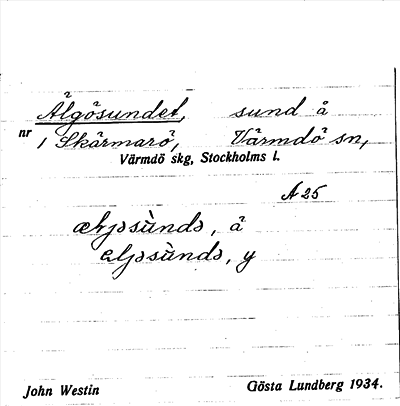 Älgösundet, sund å
nr 1 Skärmarö, Värmdö sn,
Värmdö skg, Stockholms l.
A 25
, ä
, y
John Westin Gösta Lundberg 1934.